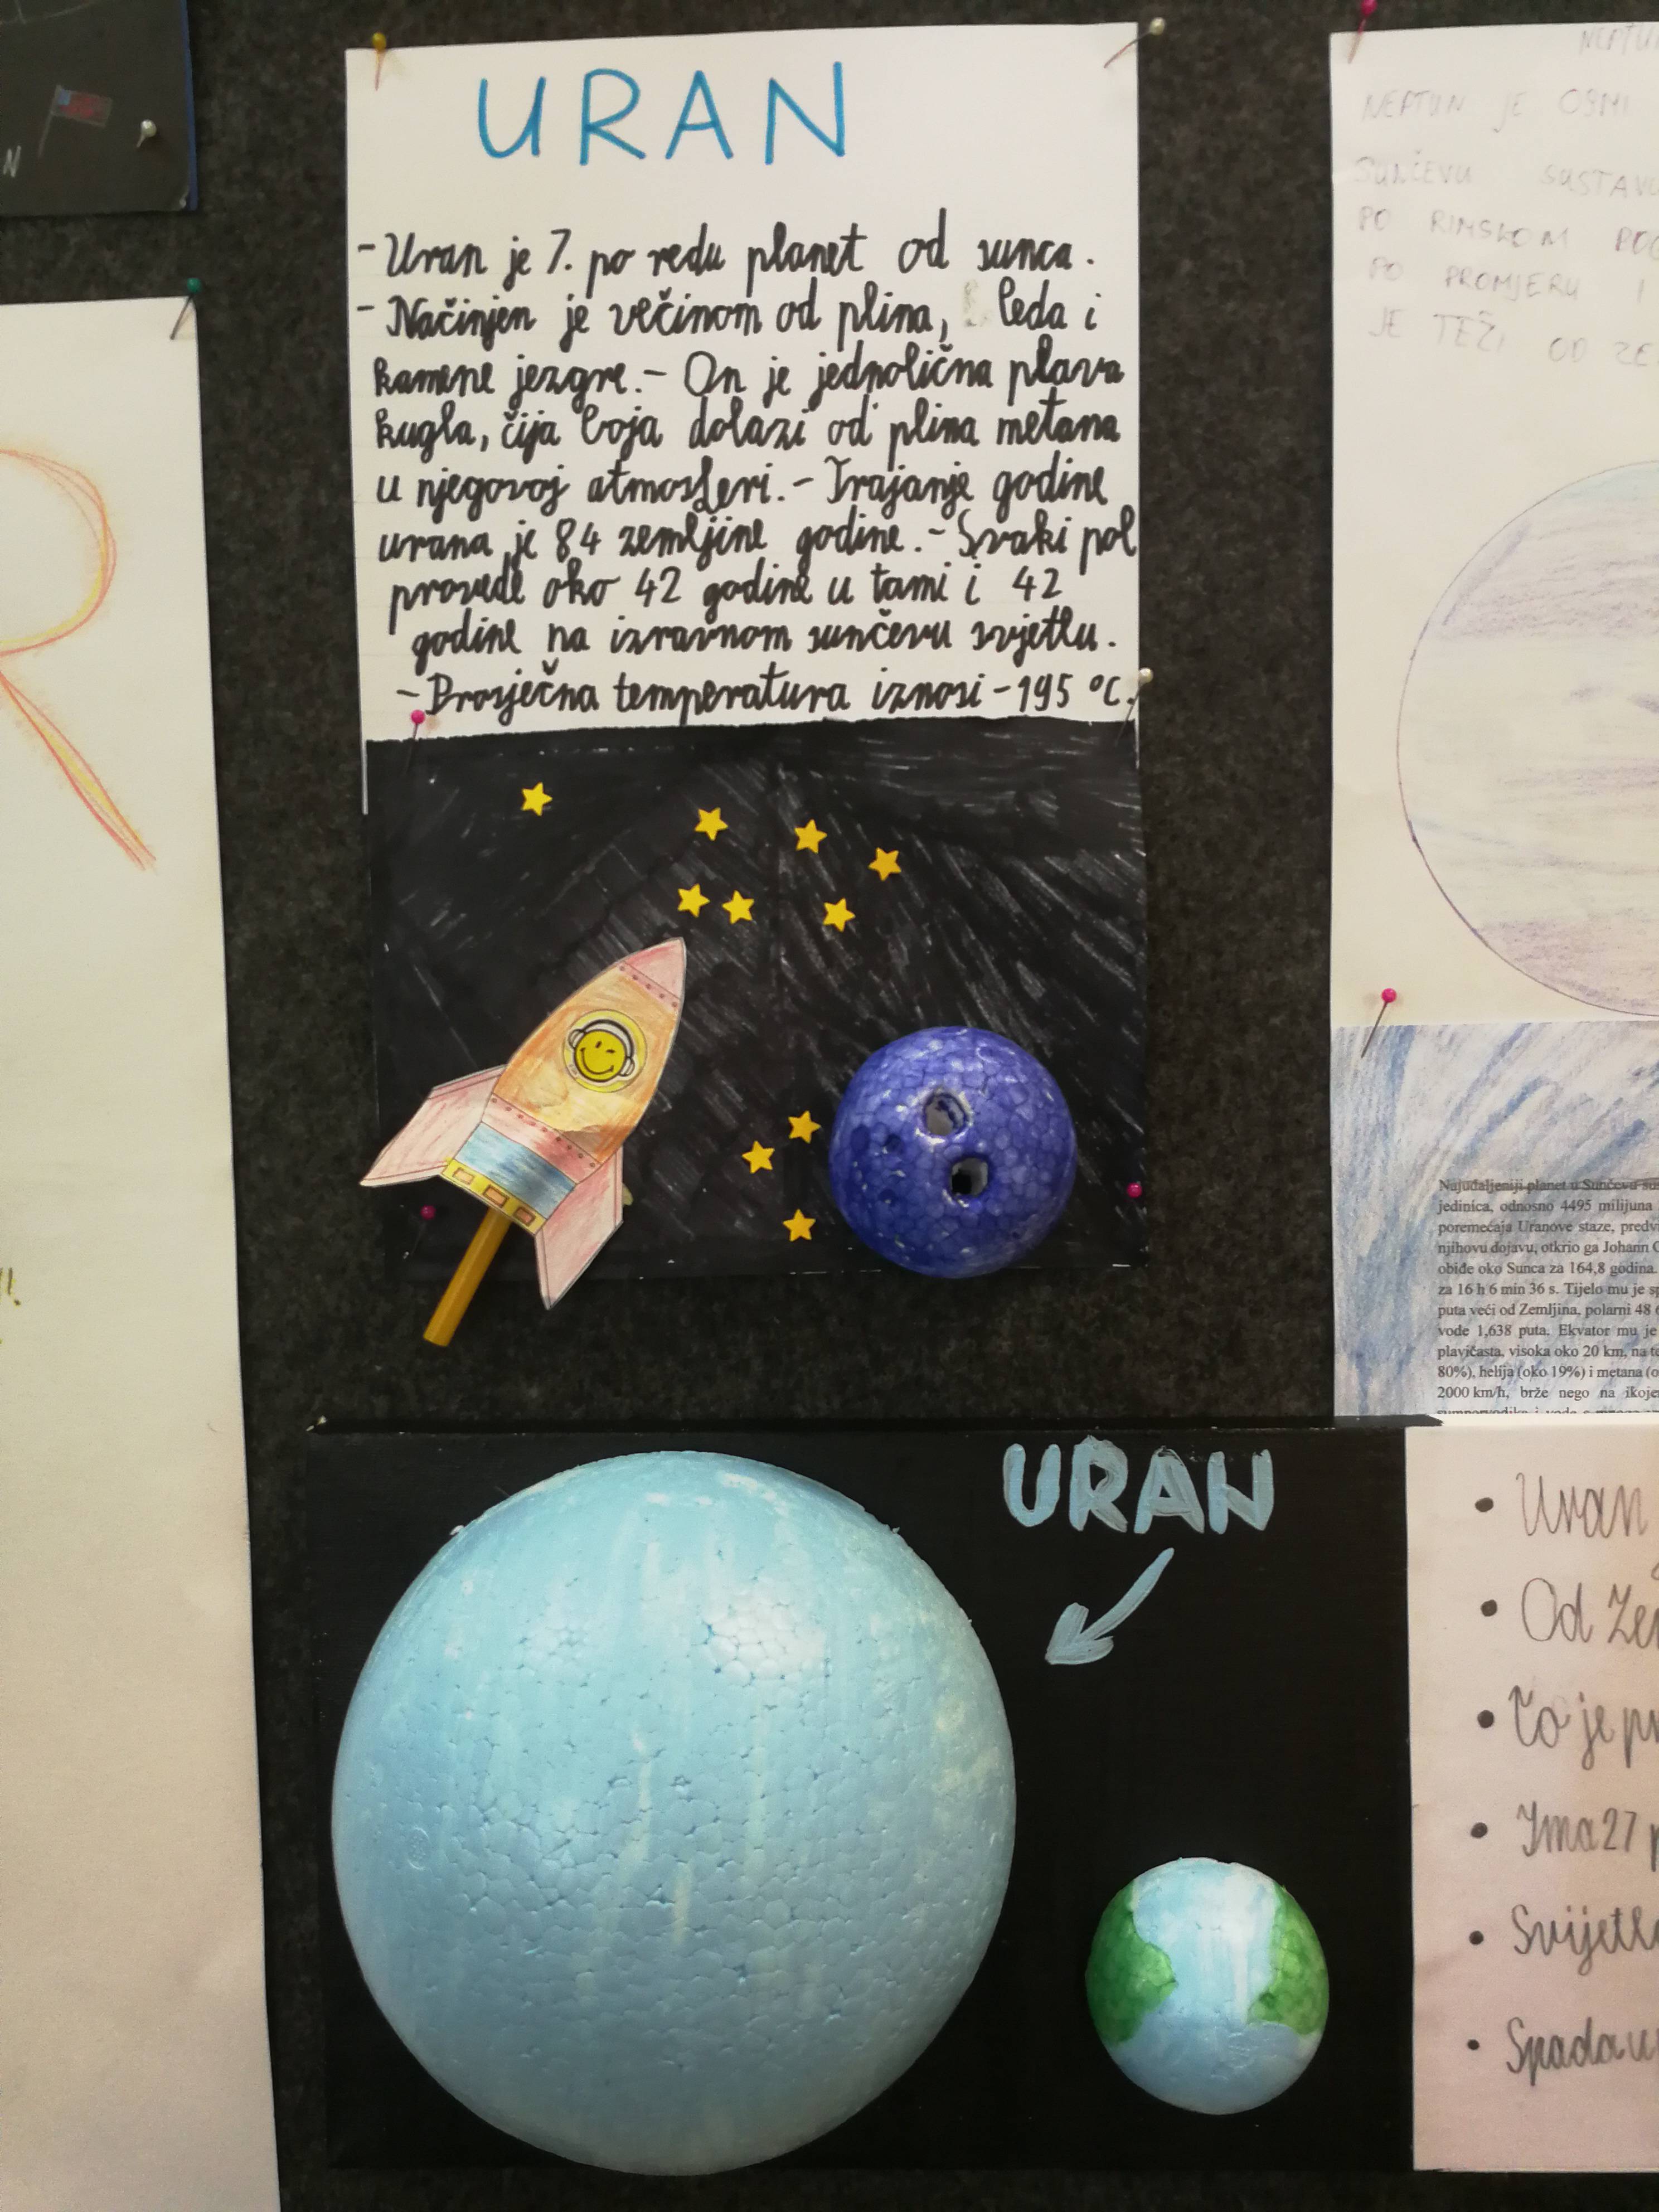 URAN
- Uran je 7. po redu planet od sunca.
- Načinjen je večinom od plina, leda i
kamene jezgre. - On je jednolična plava
kugla, čija boja dolazi od plina metana
u njegovoj atmosferi. - Trajanje godine
urana je 84 zemljine godine. - Svaki pol
provede oko 42 godine u tami i 42
godine na izravnom sunčevu svjetlu.
- Prosječna temperatura iznosi -195 °C.
URAN
N
R
NEPTUN JE OSMI
SUNČEVU SUSTAVU
PO RIMSKOM
PO PROMJERU I
JE TEŽI OD
Najudaljeniji planet u Sunčevu
jedinica, odnosno 4495 milijuna
poremećaja Uranove staze,
njihovu dojavu, otkrio ga Johann
obiđe oko Sunca za 164,8 godina.
za 16 h 6 min 36 s. Tijelo mu je
puta veći od Zemljina, polarni 48
vode 1,638 puta. Ekvator mu je
plavičasta, visoka oko 20 km, na
80%), helija (oko 19%) i metana
2000 km/h, brže nego na
• Uran
• Od
• Čo je
• Ima 27
•
• Spada u